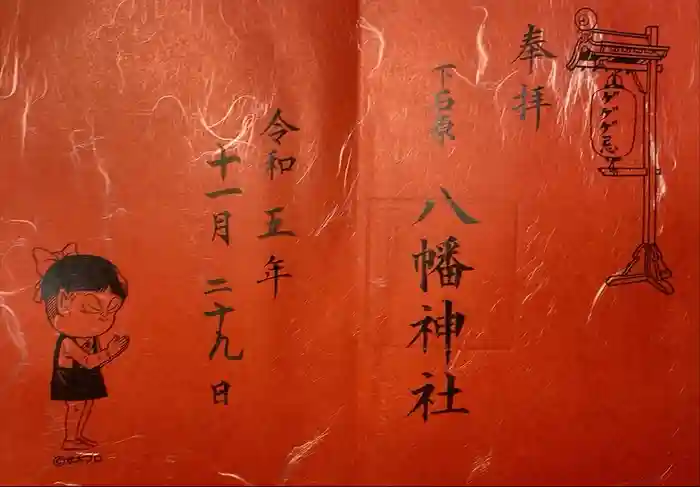 ゲゲゲ忌
奉拝
下石原
八幡神社
令和五年
十一月二十九日
©水木プロ